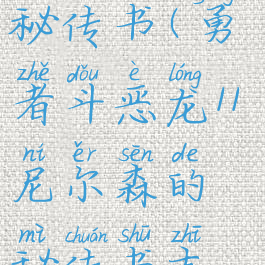 秘传书(勇
zhě dǒu è lóng
者斗恶龙11
ní ěr sēn de
尼尔森的
mì chuán shū zhī